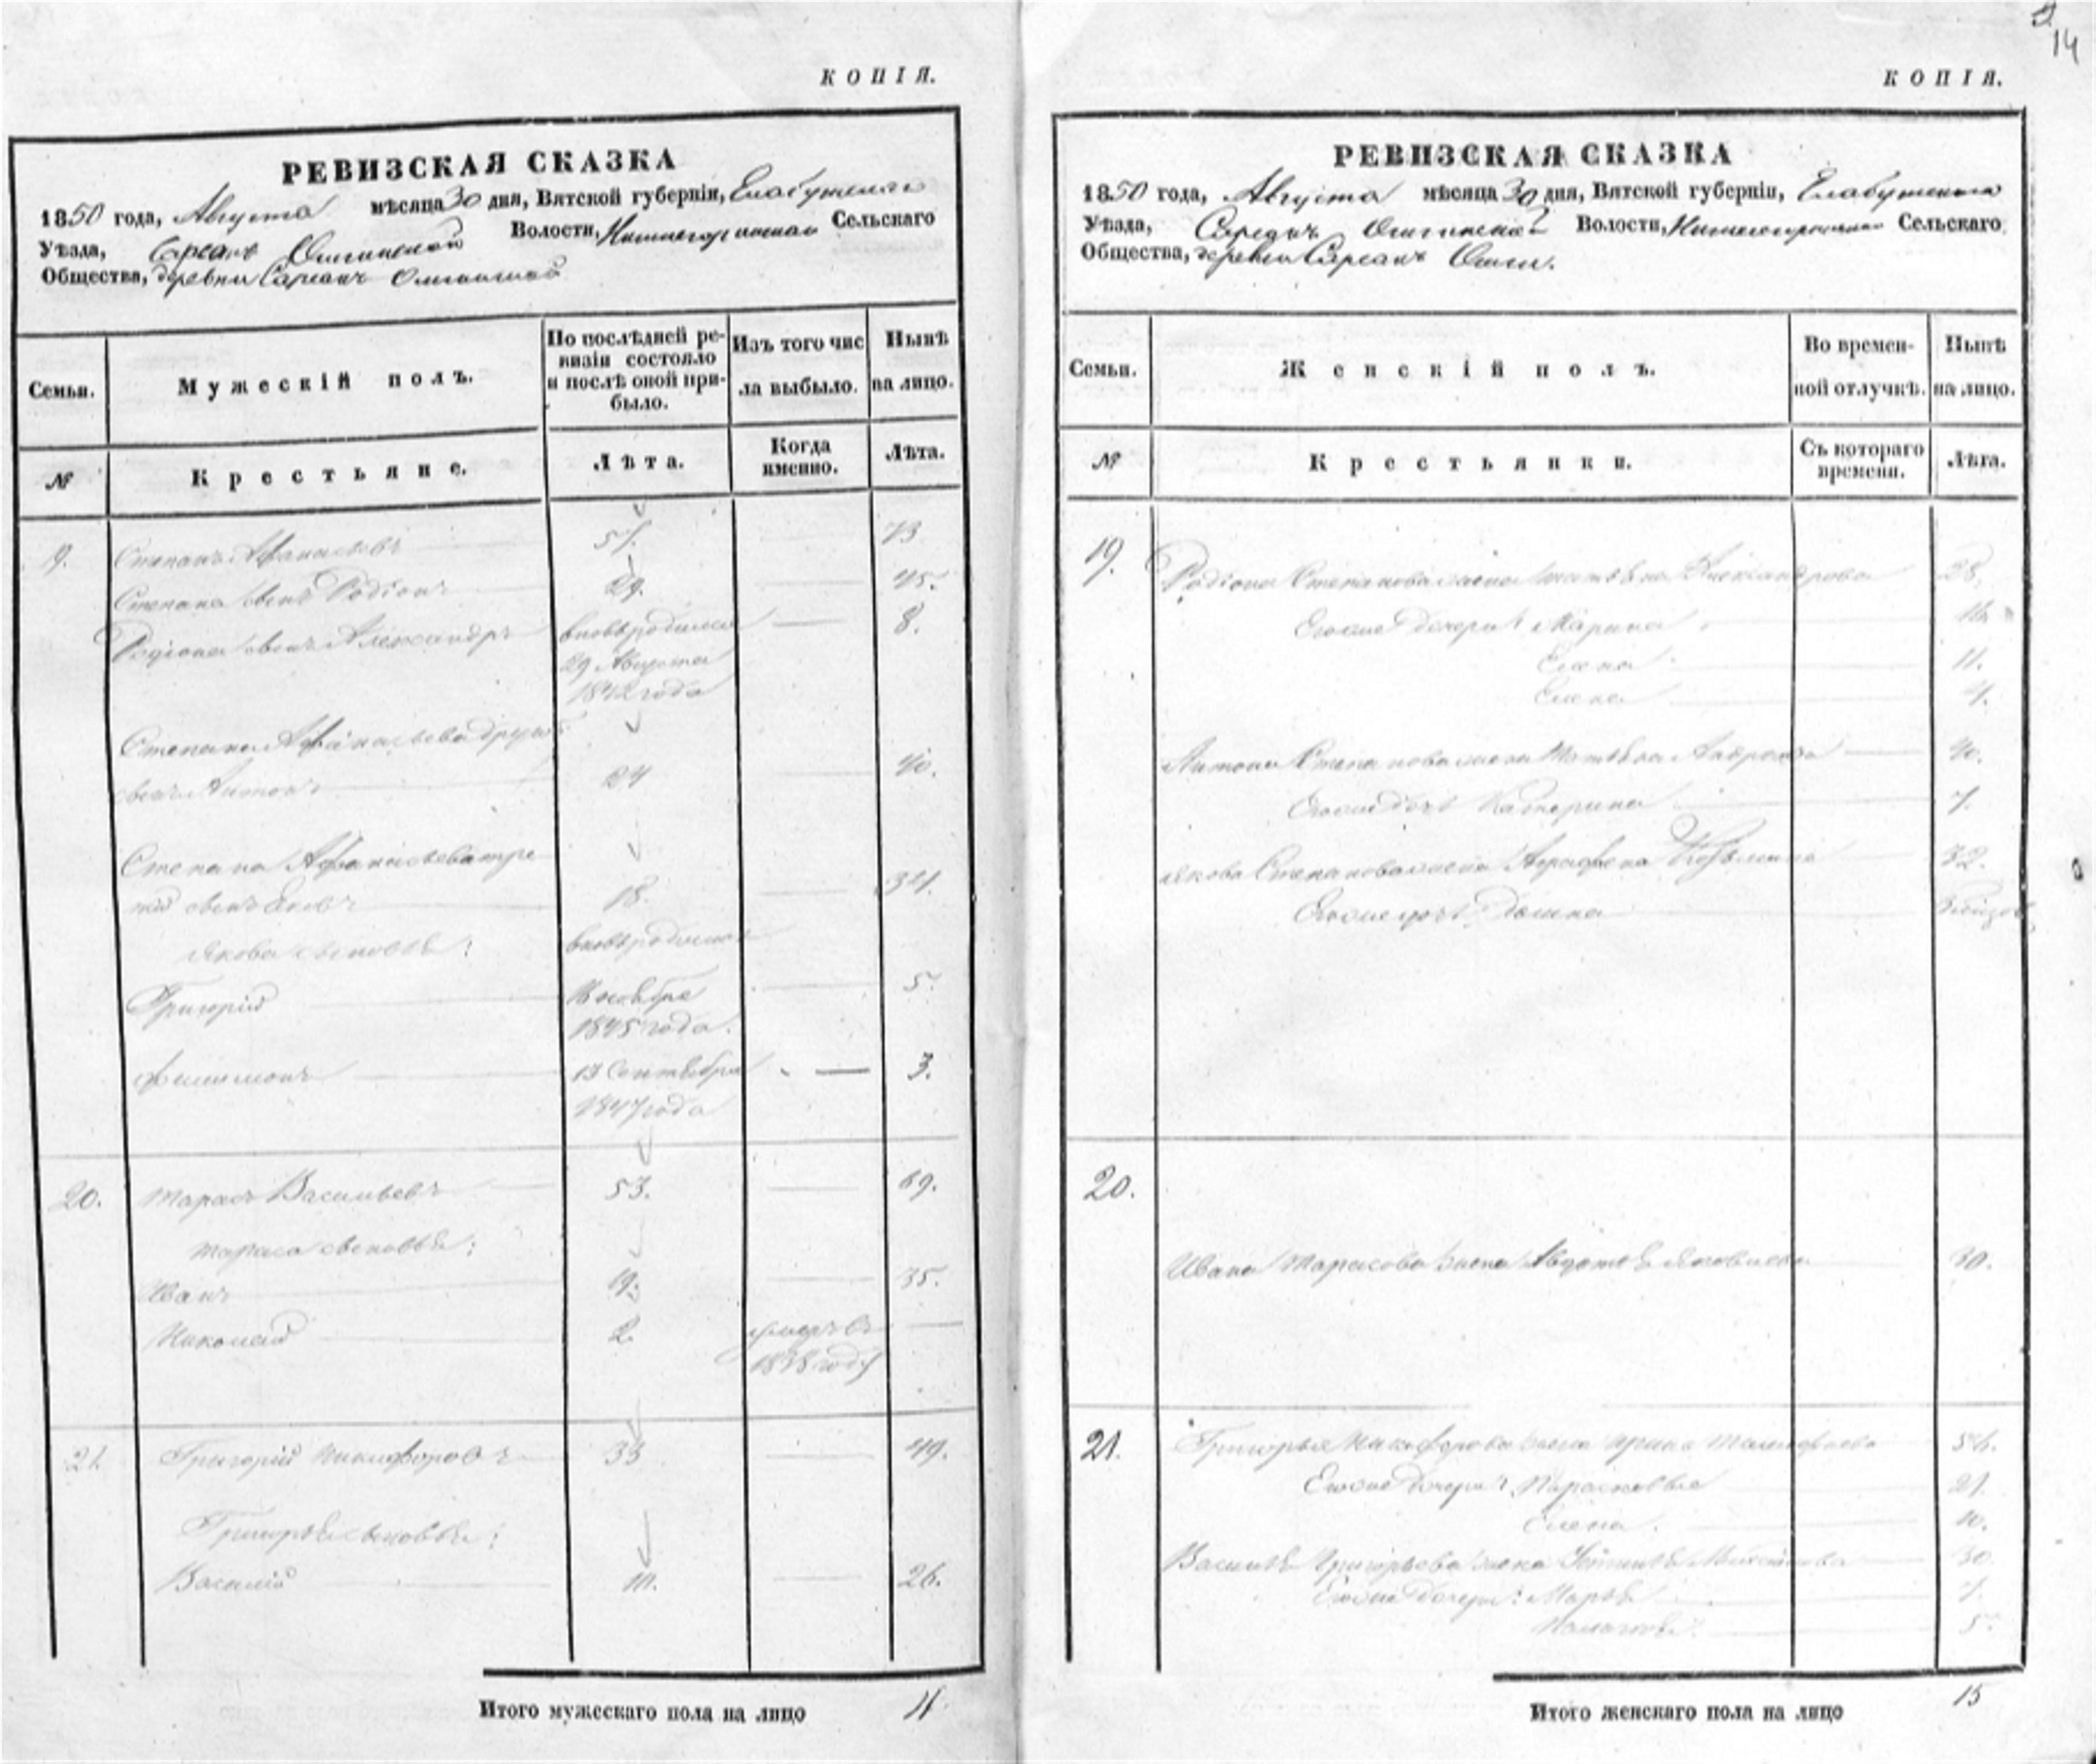 КОПІЯ.
РЕВИЗСКАЯ СКАЗКА
1850 года, Августа мѣсяца 30 дня, Вятской губерніи, Елабужскаго
Уѣзда, Волости, Сельскаго
Общества, деревни
Семьи.
Мужескій полъ.
По послѣдней ре-
визіи состояло
и послѣ оной при-
было.
Изъ того чис
ла выбыло.
Нынѣ
на лицо.
№
Крестьяне.
Лѣта.
Когда
именно.
Лѣта.
9. Степанъ Афанасьевъ 57. 73
Степана сынъ Родіонъ 29. 45.
Родіона сынъ Александръ вновь родился 8.
29 Августа
1842 года
Степана Афанасьева другой
сынъ Антонъ 24 40.
Степана Афанасьева тре
тій сынъ Яковъ 18. 34.
Якова сыновья: вновь родились
Григорій Ноября 5.
1845 года.
Филимонъ 13 Сентября 3.
1847 года
20. Тарасъ Васильевъ 53. 69.
Тараса сыновья:
Иванъ 19. 35.
Николай 2. умеръ въ
1838 году
21. Григорій Никифоровъ 33 49.
Григорья сыновья:
Василій 10. 26.
Итого мужескаго пола на лицо 11.
14
КОПІЯ.
РЕВИЗСКАЯ СКАЗКА
1850 года, Августа мѣсяца 30 дня, Вятской губерніи, Елабужскаго
Уѣзда, Волости, Сельскаго
Общества, деревни
Семьи.
Женскій полъ.
Во времен-
ной отлучкѣ.
Нынѣ
на лицо.
№
Крестьянки.
Съ котораго
времени.
Лѣта.
19. Родіона Степанова жена Татьяна Александрова 38.
Его же дочери: Марина
Елена 11.
Елена 4.
Антона Степанова жена Татьяна 40.
Его же дочь Катерина 7.
Якова Степанова жена Аграфена Козьмина 32.
Его же дочь
20.
Ивана Тарасова жена Авдотья Яковлева 30.
21. Григорья Никифорова жена Ирина 56.
Его же дочери: Парасковья 21.
Елена. 10.
Василья Григорьева жена 30.
Его же дочери: Марья 7.
5.
Итого женскаго пола на лицо 15